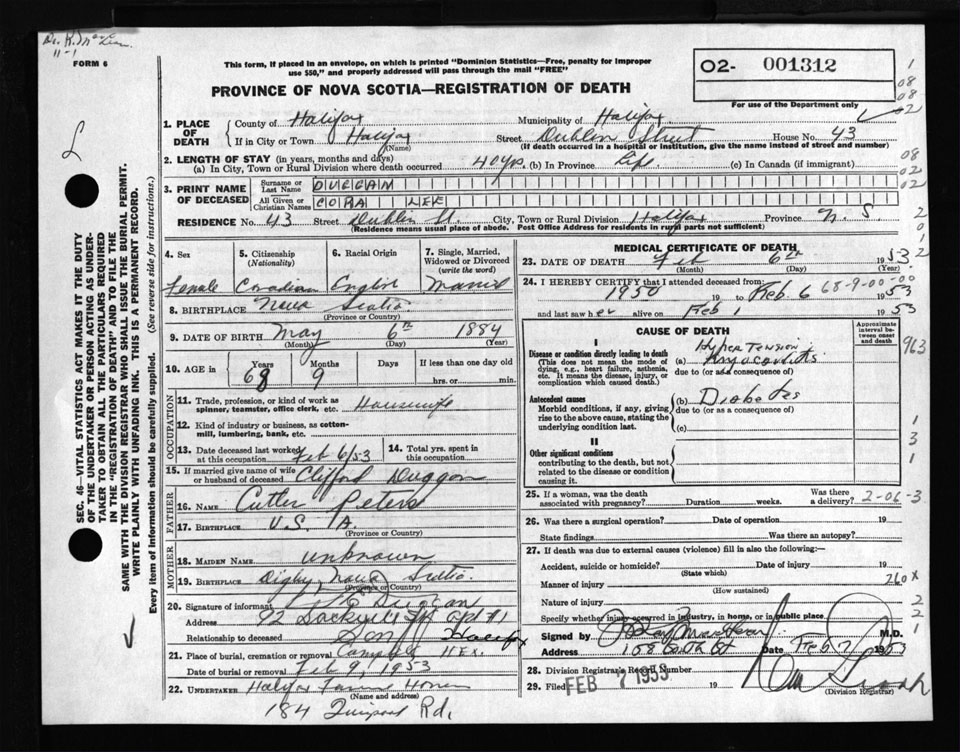 Dr. K.
11-1
FORM 6
This form, if placed in an envelope, on which is printed "Dominion Statistics—Free, penalty for improper
use $50," and properly addressed will pass through the mail "FREE"
PROVINCE OF NOVA SCOTIA—REGISTRATION OF DEATH
02- 001312
For use of the Department only
1. PLACE OF DEATH
County of Halifax Municipality of Halifax
If in City or Town Halifax Street Dublin Street House No. 43
(Name) (If death occurred in a hospital or institution, give the name instead of street and number)
2. LENGTH OF STAY (in years, months and days)
(a) In City, Town or Rural Division where death occurred 40 yrs. (b) In Province Life (c) In Canada (if immigrant)
3. PRINT NAME OF DECEASED
Surname or Last Name DUGGAN
All Given or Christian Names CORA LEE
RESIDENCE No. 43 Street Dublin St. City, Town or Rural Division Halifax Province N. S.
(Residence means usual place of abode. Post Office Address for residents in rural parts not sufficient)
4. Sex 5. Citizenship (Nationality) 6. Racial Origin 7. Single, Married, Widowed or Divorced (write the word)
Female Canadian English Married
8. BIRTHPLACE Nova Scotia
(Province or Country)
9. DATE OF BIRTH May 6th 1884
(Month) (Day) (Year)
10. AGE in Years Months Days If less than one day old
68 9 hrs. or min.
OCCUPATION
11. Trade, profession, or kind of work as spinner, teamster, office clerk, etc. Housewife
12. Kind of industry or business, as cotton-mill, lumbering, bank, etc.
13. Date deceased last worked at this occupation Feb 6/53 14. Total yrs. spent in this occupation
15. If married give name of wife or husband of deceased Clifford Duggan
FATHER
16. Name Cutler Peters
17. BIRTHPLACE U.S.A.
(Province or Country)
MOTHER
18. MAIDEN NAME unknown
19. BIRTHPLACE Digby, Nova Scotia
(Province or Country)
20. Signature of informant Duggan
Address 92 Sackville St Apt #1
Relationship to deceased Son Halifax
21. Place of burial, cremation or removal Camp Hill Hfx.
Date of burial or removal Feb 9, 1953
22. UNDERTAKER Halifax Funeral Home
(Name and address)
184 Quinpool Rd.
MEDICAL CERTIFICATE OF DEATH
23. DATE OF DEATH Feb 6th 1953
(Month) (Day) (Year)
24. I HEREBY CERTIFY that I attended deceased from: 68-9-00-00
1950 19 to Feb. 6 1953
and last saw her alive on Feb 1 1953
CAUSE OF DEATH
Approximate interval between onset and death
I
Disease or condition directly leading to death
(This does not mean the mode of dying, e.g., heart failure, asthenia, etc. It means the disease, injury, or complication which caused death.)
Hypertension
(a) Myocarditis
due to (or as a consequence of)
963
Antecedent causes
Morbid conditions, if any, giving rise to the above cause, stating the underlying condition last.
(b) Diabetes
due to (or as a consequence of)
(c)
II
Other significant conditions
contributing to the death, but not related to the disease or condition causing it.
25. If a woman, was the death associated with pregnancy? Duration weeks. Was there a delivery? 2-06-3
26. Was there a surgical operation? Date of operation 19
State findings Was there an autopsy?
27. If death was due to external causes (violence) fill in also the following:—
Accident, suicide or homicide? Date of injury 19
(State which)
Manner of injury 260x
(How sustained)
Nature of injury
Specify whether injury occurred in industry, in home, or in public place
Signed by M.D.
Address 158 Date Feb 7 1953
28. Division Registrar's Record Number
29. Filed FEB 7 1953 19
(Division Registrar)
SEC. 46—VITAL STATISTICS ACT MAKES IT THE DUTY
OF THE UNDERTAKER OR PERSON ACTING AS UNDER-
TAKER TO OBTAIN ALL THE PARTICULARS REQUIRED
IN THE "REGISTRATION OF DEATH" AND TO FILE THE
SAME WITH THE DIVISION REGISTRAR WHO SHALL ISSUE THE BURIAL PERMIT.
WRITE PLAINLY WITH UNFADING INK. THIS IS A PERMANENT RECORD.
Every item of information should be carefully supplied. (See reverse side for instructions.)